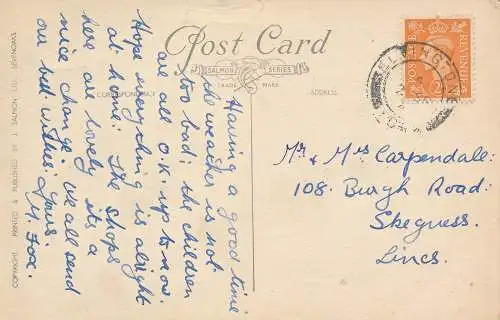 Post Card
SALMON SERIES
TRADE MARK
CORRESPONDENCE
ADDRESS.
COPYRIGHT. PRINTED & PUBLISHED BY J. SALMON LTD., SEVENOAKS
Having a good time
the weather is not
too bad, the children
are all O.K. up to now.
Hope everything is alright
at home. The shops
here are lovely its a
nice change, we all send
our best wishes. Yours.
M Fox.
Mr & Mrs Carpendale.
108. Burgh Road.
Skegness.
Lincs.